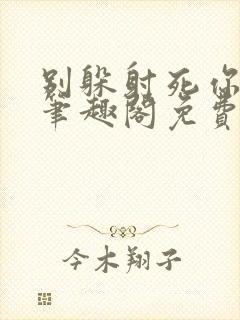 别躲射死你
笔趣阁免费
今木翔子